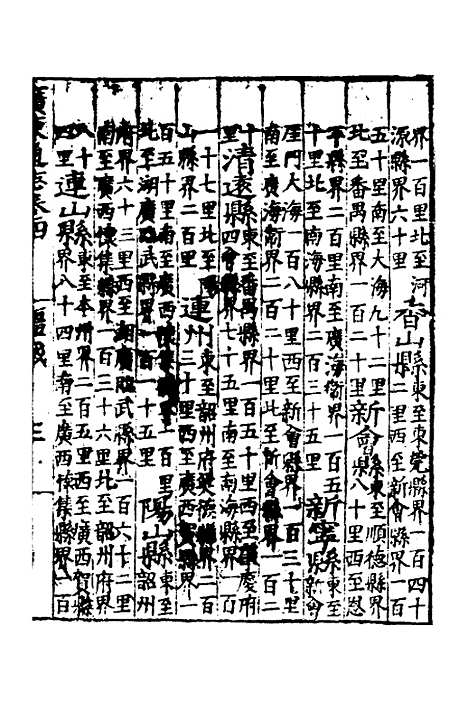 界一百里北至河
源縣界六十里
香山縣
東至東莞縣界一百四十
二里西至新會縣界一百
五十里南至大海九十二里
北至番禺縣界一百二十里
新會縣
東至順德縣界
八十里西至恩
平縣界二百里南至廣海衛界一百五
十里北至南海縣界二百三十五里
新寧縣
東至
新會
厓門大海一百八十里西至新會縣界一百三十里
南至廣海衛界二百二十里北至新會縣界一百二
十
里
清遠縣
東至番禺縣界一百五十里西至肇慶府
四會縣界七十五里南至南海縣界一百
一十七里北至陽
山縣界二百里
連州
東至韶州府英德縣界二百
三十里西至廣西賀縣界一
百五十里南至廣西懷集縣界一百里
北至湖廣臨武縣界一百一十五里
陽山縣
東至
韶州
府界六十三里西至湖廣臨武縣界一百六十二里
南至廣西懷集縣界一百三十六里北至韶州府界
八十
四里
連山縣
東至本州界二百五里西至廣西賀縣
界八十四里南至廣西懷集縣界一百
廣東通志卷四
疆域
三